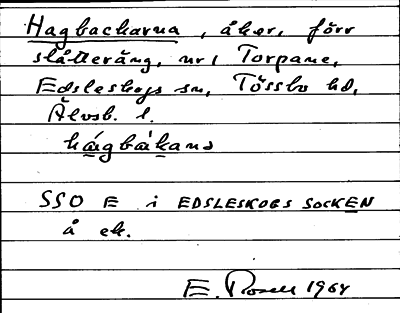 Hagbackarna, åker, förr
slåtteräng, nr 1 Torpane,
Edsleskogs sn, Tössbo hd,
Älvsb. l.
hágbákana
SSO E i EDSLESKOGS SOCKEN
å ek.
E. 1964